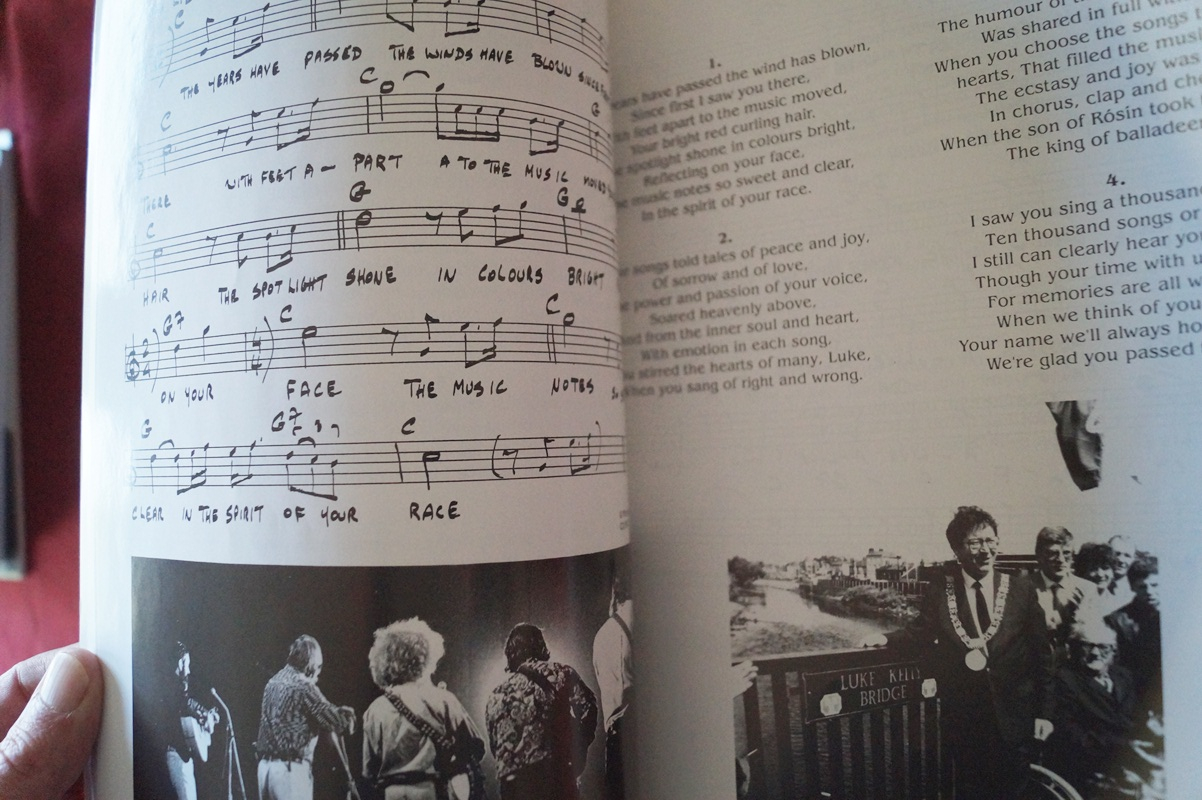 C
THE YEARS HAVE PASSED THE WINDS HAVE BLOWN SINCE
C C G
WITH FEET A - PART A TO THE MUSIC MOVED
THERE
C G G
HAIR THE SPOTLIGHT SHONE IN COLOURS BRIGHT
G7 C C
ON YOUR FACE THE MUSIC NOTES
G G7 C
CLEAR IN THE SPIRIT OF YOUR RACE
1.
have passed the wind has blown,
Since first I saw you there,
feet apart to the music moved,
Your bright red curling hair.
spotlight shone in colours bright,
Reflecting on your face,
music notes so sweet and clear,
In the spirit of your race.
2.
songs told tales of peace and joy,
Of sorrow and of love,
power and passion of your voice,
Soared heavenly above,
from the inner soul and heart,
With emotion in each song,
stirred the hearts of many, Luke,
When you sang of right and wrong.
The humour of
Was shared in full
When you choose the songs
hearts, That filled the
The ecstasy and joy was
In chorus, clap and
When the son of Rósin took
The king of
4.
I saw you sing a
Ten thousand songs or
I still can clearly hear
Though your time with
For memories are all
When we think of
Your name we'll always
We're glad you passed
LUKE KELLY
BRIDGE